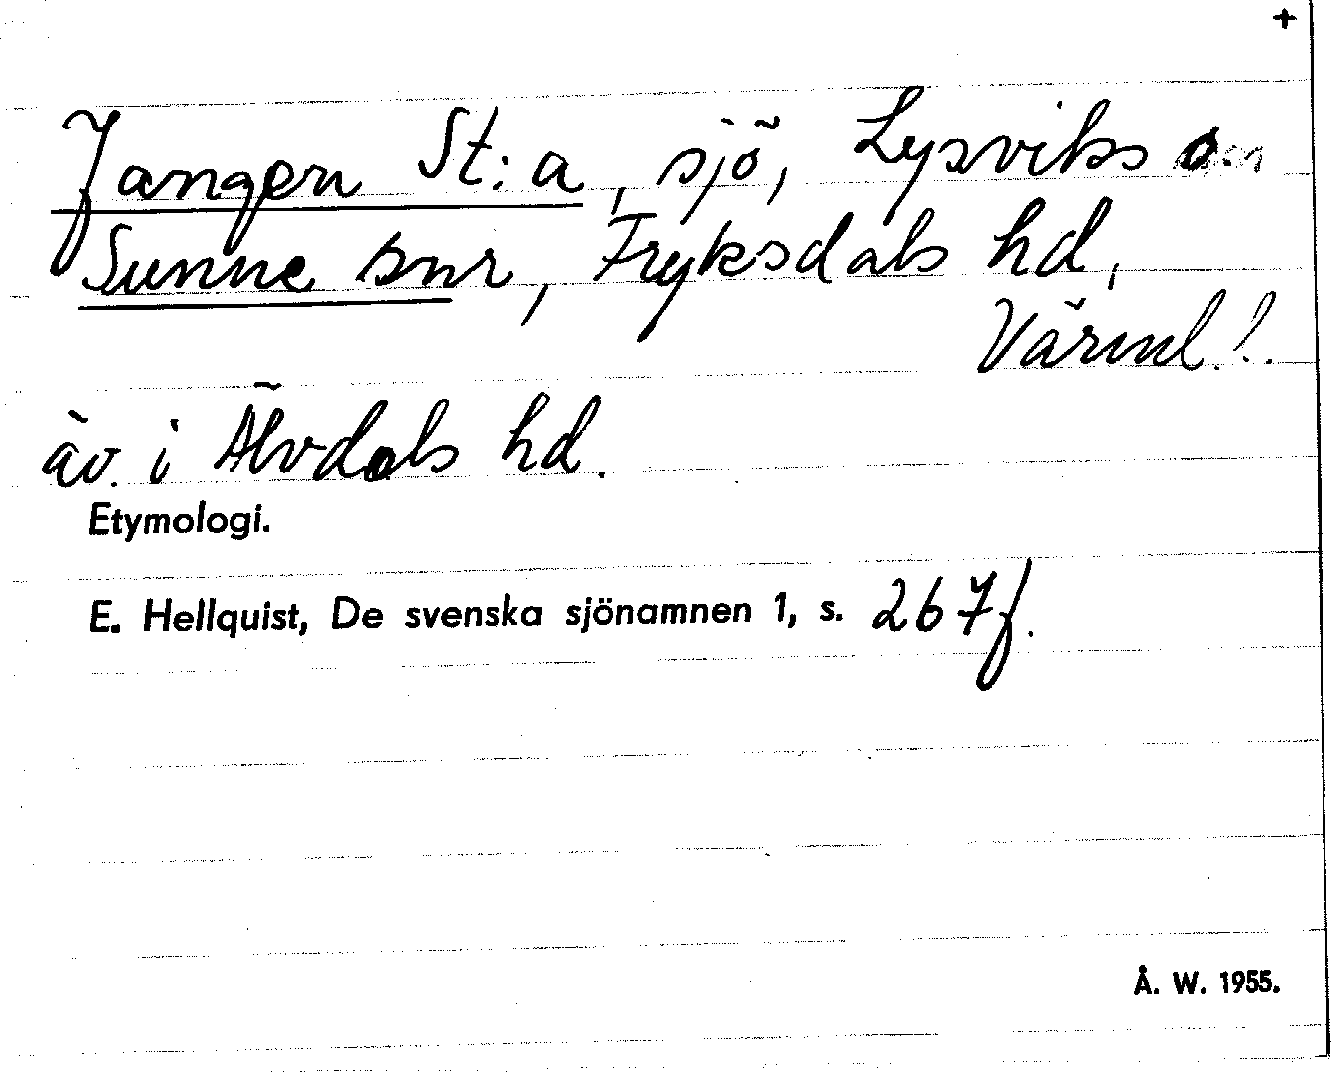 +
Jangen St:a, sjö, Lysviks o.
Sunne snr, Fryksdals hd,
Värml.!
äv. i Älvdals hd.
Etymologi.
E. Hellquist, De svenska sjönamnen 1, s. 267f.
Å. W. 1955.